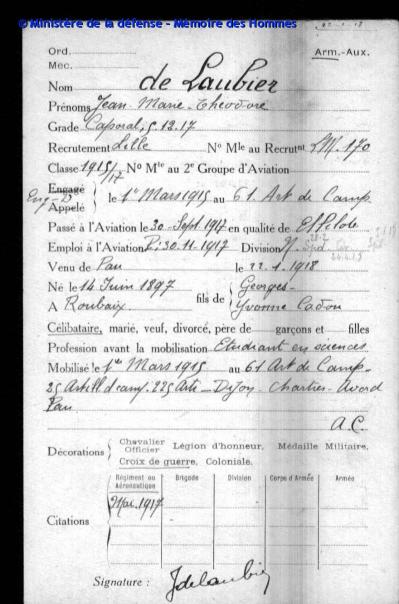 © Ministère de la défense - Mémoire des Hommes
Ord.
Arm.-Aux.
Mec.
Nom de Laubier
Prénoms Jean Marie Theodore
Grade Caporal, 5.12.17
Recrutement Lille Nº Mle au Recrutnt LM. 170
Classe 1915/17 Nº Mle au 2e Groupe d'Aviation
Engagé
Appelé } le 1er Mars 1915 au 61 Art de Camp.
Passé à l'Aviation le 30-Sept 1917 en qualité de El Pilote
Emploi à l'Aviation P: 30.11.1917 Division N.
Venu de Pau le 22.1.1918
Né le 14 Juin 1897
A Roubaix } fils de { Georges -
Yvonne Cadou
Célibataire, marié, veuf, divorcé, père de garçons et filles
Profession avant la mobilisation Etudiant en sciences
Mobilisé le 1er Mars 1915 au 61 Art de Camp-
25 Artill d camp. 225 Arti - Dijon - Chartres - Avord
Pau
A.C.
Décorations { Chevalier
Officier Légion d'honneur, Médaille Militaire,
Croix de guerre, Coloniale.
Régiment ou Aéronautique Brigade Division Corps d'Armée Armée
Citations { Mai. 1917
Signature : Jdelaubier